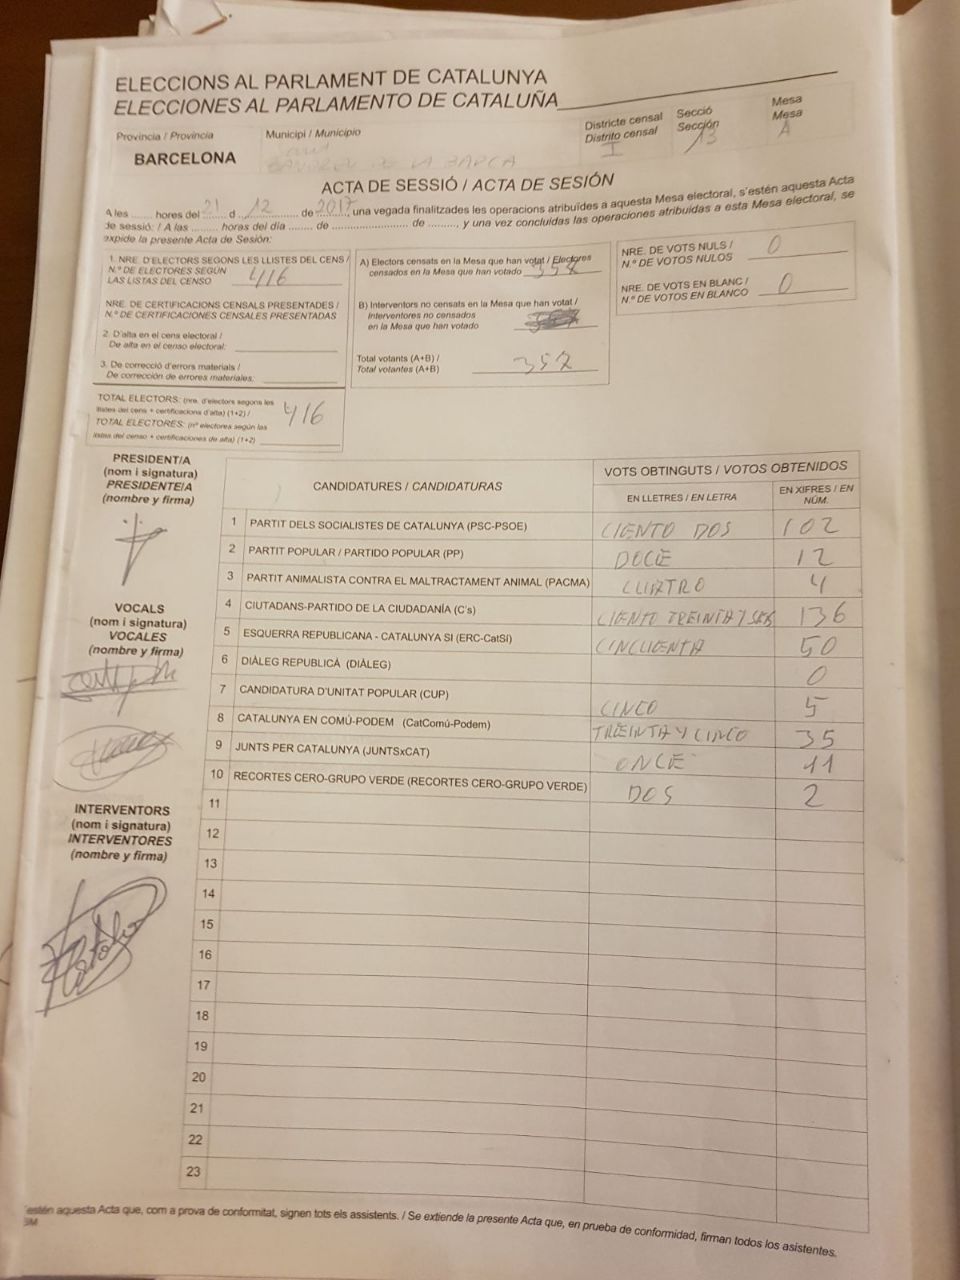 ELECCIONS AL PARLAMENT DE CATALUNYA
ELECCIONES AL PARLAMENTO DE CATALUÑA
Provincia / Provincia
BARCELONA
Municipi / Municipio
SANT
ANDREU DE LA BARCA
Districte censal
Distrito censal
I
Secció
Sección
13
Mesa
Mesa
A
ACTA DE SESSIÓ / ACTA DE SESIÓN
A les ...... hores del 21 d 12 de 2017, una vegada finalitzades les operacions atribuïdes a aquesta Mesa electoral, s'estén aquesta Acta
de sessió: / A las ....... horas del día ....... de ........................ de ........, y una vez concluidas las operaciones atribuidas a esta Mesa electoral, se
expide la presente Acta de Sesión:
1. NRE. D'ELECTORS SEGONS LES LLISTES DEL CENS /
N.º DE ELECTORES SEGÚN
LAS LISTAS DEL CENSO 416
NRE. DE CERTIFICACIONS CENSALS PRESENTADES /
N.º DE CERTIFICACIONES CENSALES PRESENTADAS
2. D'alta en el cens electoral /
De alta en el censo electoral:
3. De correcció d'errors materials /
De corrección de errores materiales:
TOTAL ELECTORS: (nre. d'electors segons les
llistes del cens + certificacions d'alta) (1+2) /
TOTAL ELECTORES: (nº electores según las
listas del censo + certificaciones de alta) (1+2)
416
A) Electors censats en la Mesa que han votat / Electores
censados en la Mesa que han votado 357
B) Interventors no censats en la Mesa que han votat /
Interventores no censados
en la Mesa que han votado
Total votants (A+B) /
Total votantes (A+B) 357
NRE. DE VOTS NULS /
N.º DE VOTOS NULOS 0
NRE. DE VOTS EN BLANC /
N.º DE VOTOS EN BLANCO 0
PRESIDENT/A
(nom i signatura)
PRESIDENTE/A
(nombre y firma)
VOCALS
(nom i signatura)
VOCALES
(nombre y firma)
INTERVENTORS
(nom i signatura)
INTERVENTORES
(nombre y firma)
CANDIDATURES / CANDIDATURAS
VOTS OBTINGUTS / VOTOS OBTENIDOS
EN LLETRES / EN LETRA
EN XIFRES / EN
NÚM.
1 PARTIT DELS SOCIALISTES DE CATALUNYA (PSC-PSOE) CIENTO DOS 102
2 PARTIT POPULAR / PARTIDO POPULAR (PP) DOCE 12
3 PARTIT ANIMALISTA CONTRA EL MALTRACTAMENT ANIMAL (PACMA) CUATRO 4
4 CIUTADANS-PARTIDO DE LA CIUDADANÍA (C's) CIENTO TREINTA Y SEIS 136
5 ESQUERRA REPUBLICANA - CATALUNYA SI (ERC-CatSí) CINCUENTA 50
6 DIÀLEG REPUBLICÀ (DIÀLEG) 0
7 CANDIDATURA D'UNITAT POPULAR (CUP) CINCO 5
8 CATALUNYA EN COMÚ-PODEM (CatComú-Podem) TREINTA Y CINCO 35
9 JUNTS PER CATALUNYA (JUNTSxCAT) ONCE 11
10 RECORTES CERO-GRUPO VERDE (RECORTES CERO-GRUPO VERDE) DOS 2
11
12
13
14
15
16
17
18
19
20
21
22
23
estén aquesta Acta que, com a prova de conformitat, signen tots els assistents. / Se extiende la presente Acta que, en prueba de conformidad, firman todos los asistentes.